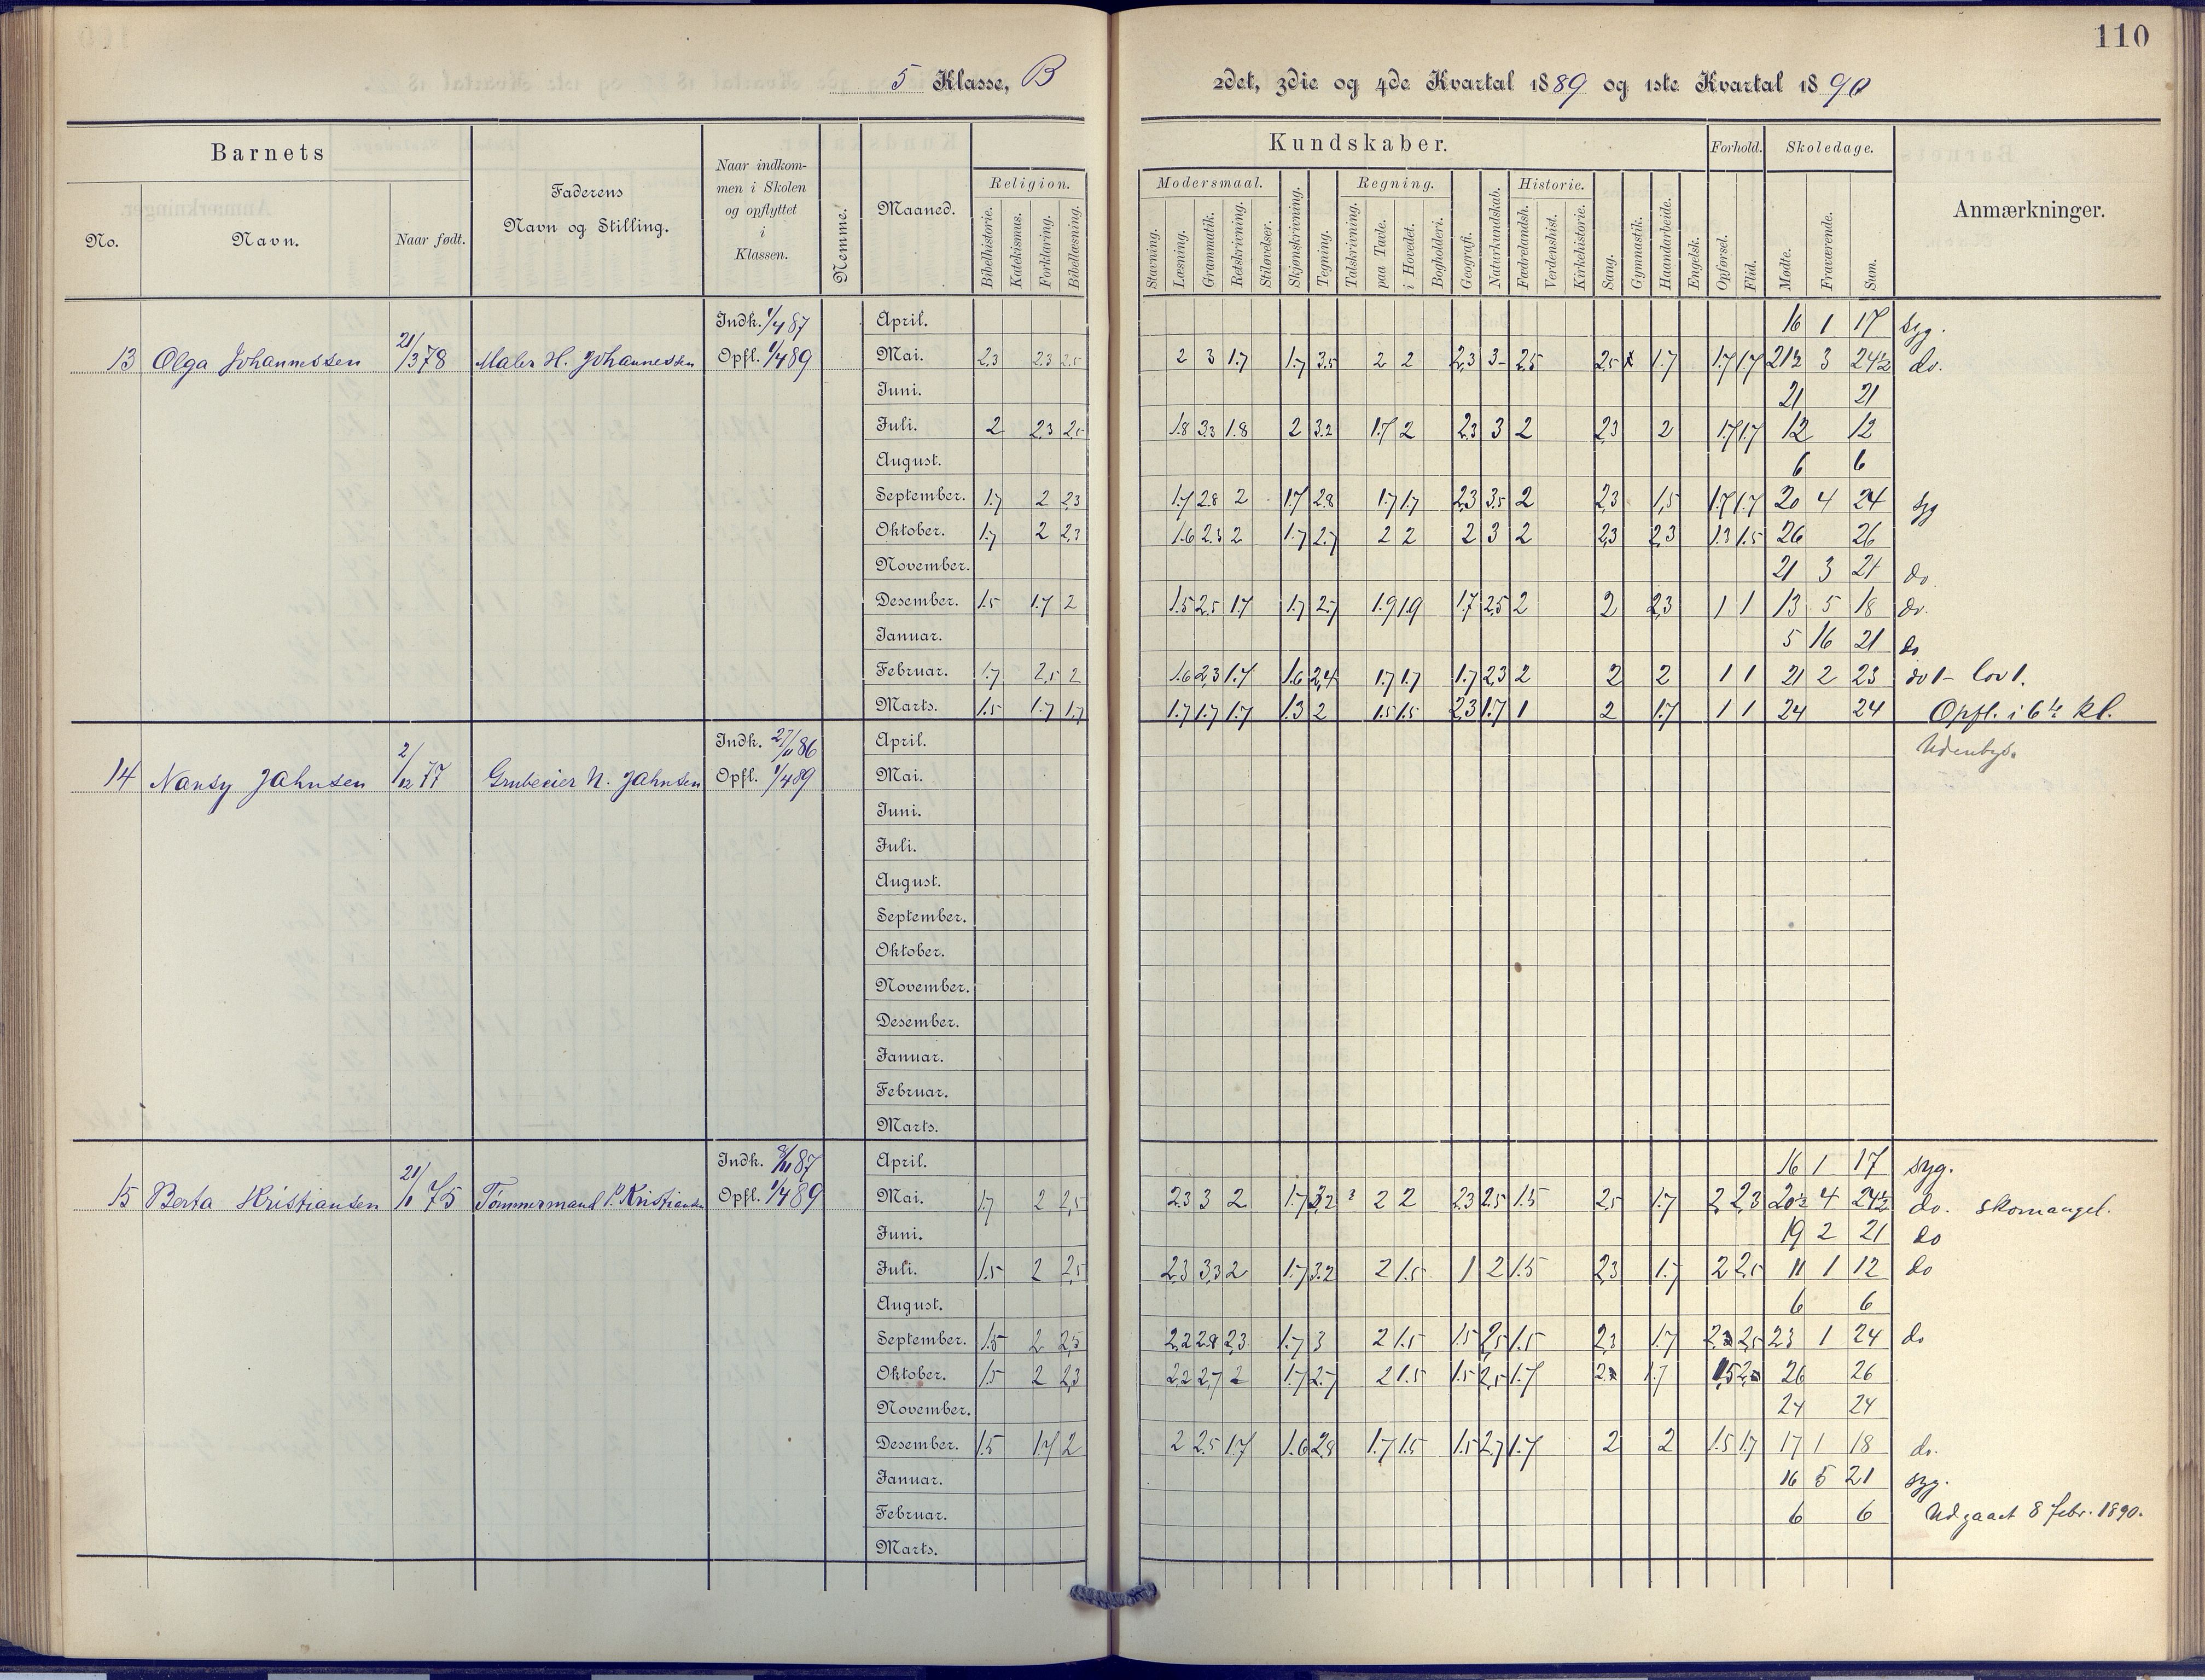 110
5 Klasse, B 2det, 3die og 4de Kvartal 1889 og 1ste Kvartal 1890
Barnets
No.
Navn.
Naar født.
Faderens
Navn og Stilling.
Naar indkom-
men i Skolen
og opflyttet
i
Klassen.
Nemme.
Maaned.
Kundskaber.
Religion.
Bibelhistorie.
Katekismus.
Forklaring.
Bibellæsning.
Modersmaal.
Stavning.
Læsning.
Grammatik.
Retskrivning.
Stiløvelser.
Skjønskrivning.
Tegning.
Regning.
Talskrivning.
paa Tavle.
i Hovedet.
Bogholderi.
Geografi.
Naturkundskab.
Historie.
Fædrelandsh.
Verdenshist.
Kirkehistorie.
Sang.
Gymnastik.
Haandarbeide.
Engelsk.
Forhold.
Opførsel.
Flid.
Skoledage.
Mødte.
Fraværende.
Sum.
Anmærkninger.
Indk. 1/4 87 April. 16 1 17 syg.
13 Olga Johannessen 21/3 78 Maler H. Johannessen Opfl. 1/4 89 Mai. 2.3 2.3 2.5 2 3 1.7 1.7 3.5 2 2 2,3 3 2.5 2.5 1.7 1.7 1.7 21½ 3 24½ do.
Juni. 21 21
Juli. 2 2.3 2.5 1.8 3.3 1.8 2 3.2 1.7 2 2.3 3 2 2,3 2 1.7 1.7 12 12
August. 6 6
September. 1.7 2 2,3 1.7 2.8 2 1.7 2.8 1.7 1.7 2,3 3.5 2 2,3 1,5 1.7 1.7 20 4 24 syg
Oktober. 1.7 2 2,3 1.6 2.3 2 1.7 2.7 2 2 2 3 2 2,3 2,3 1.3 1.5 26 26
November. 21 3 24 do.
Desember. 1.5 1.7 2 1.5 2.5 1.7 1.7 2.7 1.9 1.9 1.7 2.5 2 2 2,3 1 1 13 5 18 do.
Januar. 5 16 21 do
Februar. 1.7 2,5 2 1.6 2,3 1.7 1.6 2,4 1.7 1.7 1.7 2.3 2 2 2 1 1 21 2 23 do 1 - lov 1.
Marts. 1.5 1.7 1.7 1.7 1.7 1.7 1.3 2 1.5 1.5 2,3 1.7 1 2 1.7 1 1 24 24 Opfl. i 6te kl.
Indk. 27/11 86 April. Udenbys.
14 Nansy Jahnsen 2/12 77 Grubeeier N. Jahnsen Opfl. 1/4 89 Mai.
Juni.
Juli.
August.
September.
Oktober.
November.
Desember.
Januar.
Februar.
Marts.
Indk. 8/11 87 April. 16 1 17 syg.
15 Berta Kristiansen 21/11 75 Tømmermand P. Kristiansen Opfl. 1/4 89 Mai. 1.7 2 2,5 2.3 3 2 1.7 3,2 2 2 2.3 2.5 1.5 2,5 1.7 2 2,3 20½ 4 24½ do. skomangel.
Juni. 19 2 21 do
Juli. 1.5 2 2,5 2.3 3,3 2 1.7 3.2 2 1.5 1 2 1.5 2,3 1.7 2 2.5 11 1 12 do
August. 6 6
September. 1.5 2 2,5 2,2 2.8 2,3 1.7 3 2 1.5 1.5 2,5 1.5 2,3 1.7 2,3 2,5 23 1 24 do
Oktober. 1.5 2 2,3 2,2 2,7 2 1.7 2.7 2 1.5 1.5 2,5 1.7 1.7 26 26
November. 24 24
Desember. 1.5 1.7 2 2 2.5 1.7 1.6 2.8 1.7 1.5 1.5 2.7 1.7 2 2 1.5 1.7 17 1 18 do.
Januar. 16 5 21 syg.
Februar. 6 6 Udgaaet 8 febr. 1890.
Marts.